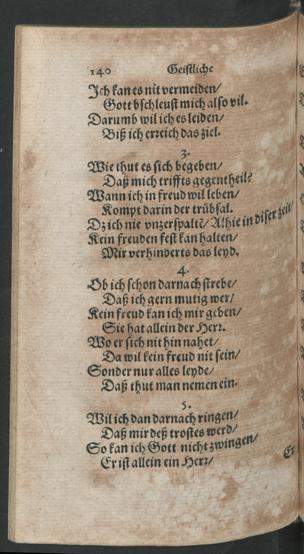 140 Geistliche
Ich kan es nit vermeiden/
Gott bschleust mich also vil.
Darumb wil ich es leiden/
Biß ich erreich das ziel.
3.
Wie thut es sich begeben/
Daß mich triffts gegentheil?
Wann ich in freud wil leben/
Kompt darin der trübsal.
Dz ich nie vnzerspaltē/ Alhie in diser zeit/
Kein freuden fest kan halten/
Mir verhinderts das leyd.
4.
Ob ich schon darnach strebe/
Daß ich gern mutig wer/
Kein freud kan ich mir geben/
Sie hat allein der Herr.
Wo er sich nit hin nahet/
Da wil kein freud nit sein/
Sonder nur alles leyde/
Daß thut man nemen ein.
5.
Wil ich dan darnach ringen/
Daß mir deß trostes werd/
So kan ich Gott nicht zwingen/
Er ist allein ein Herr/
Er